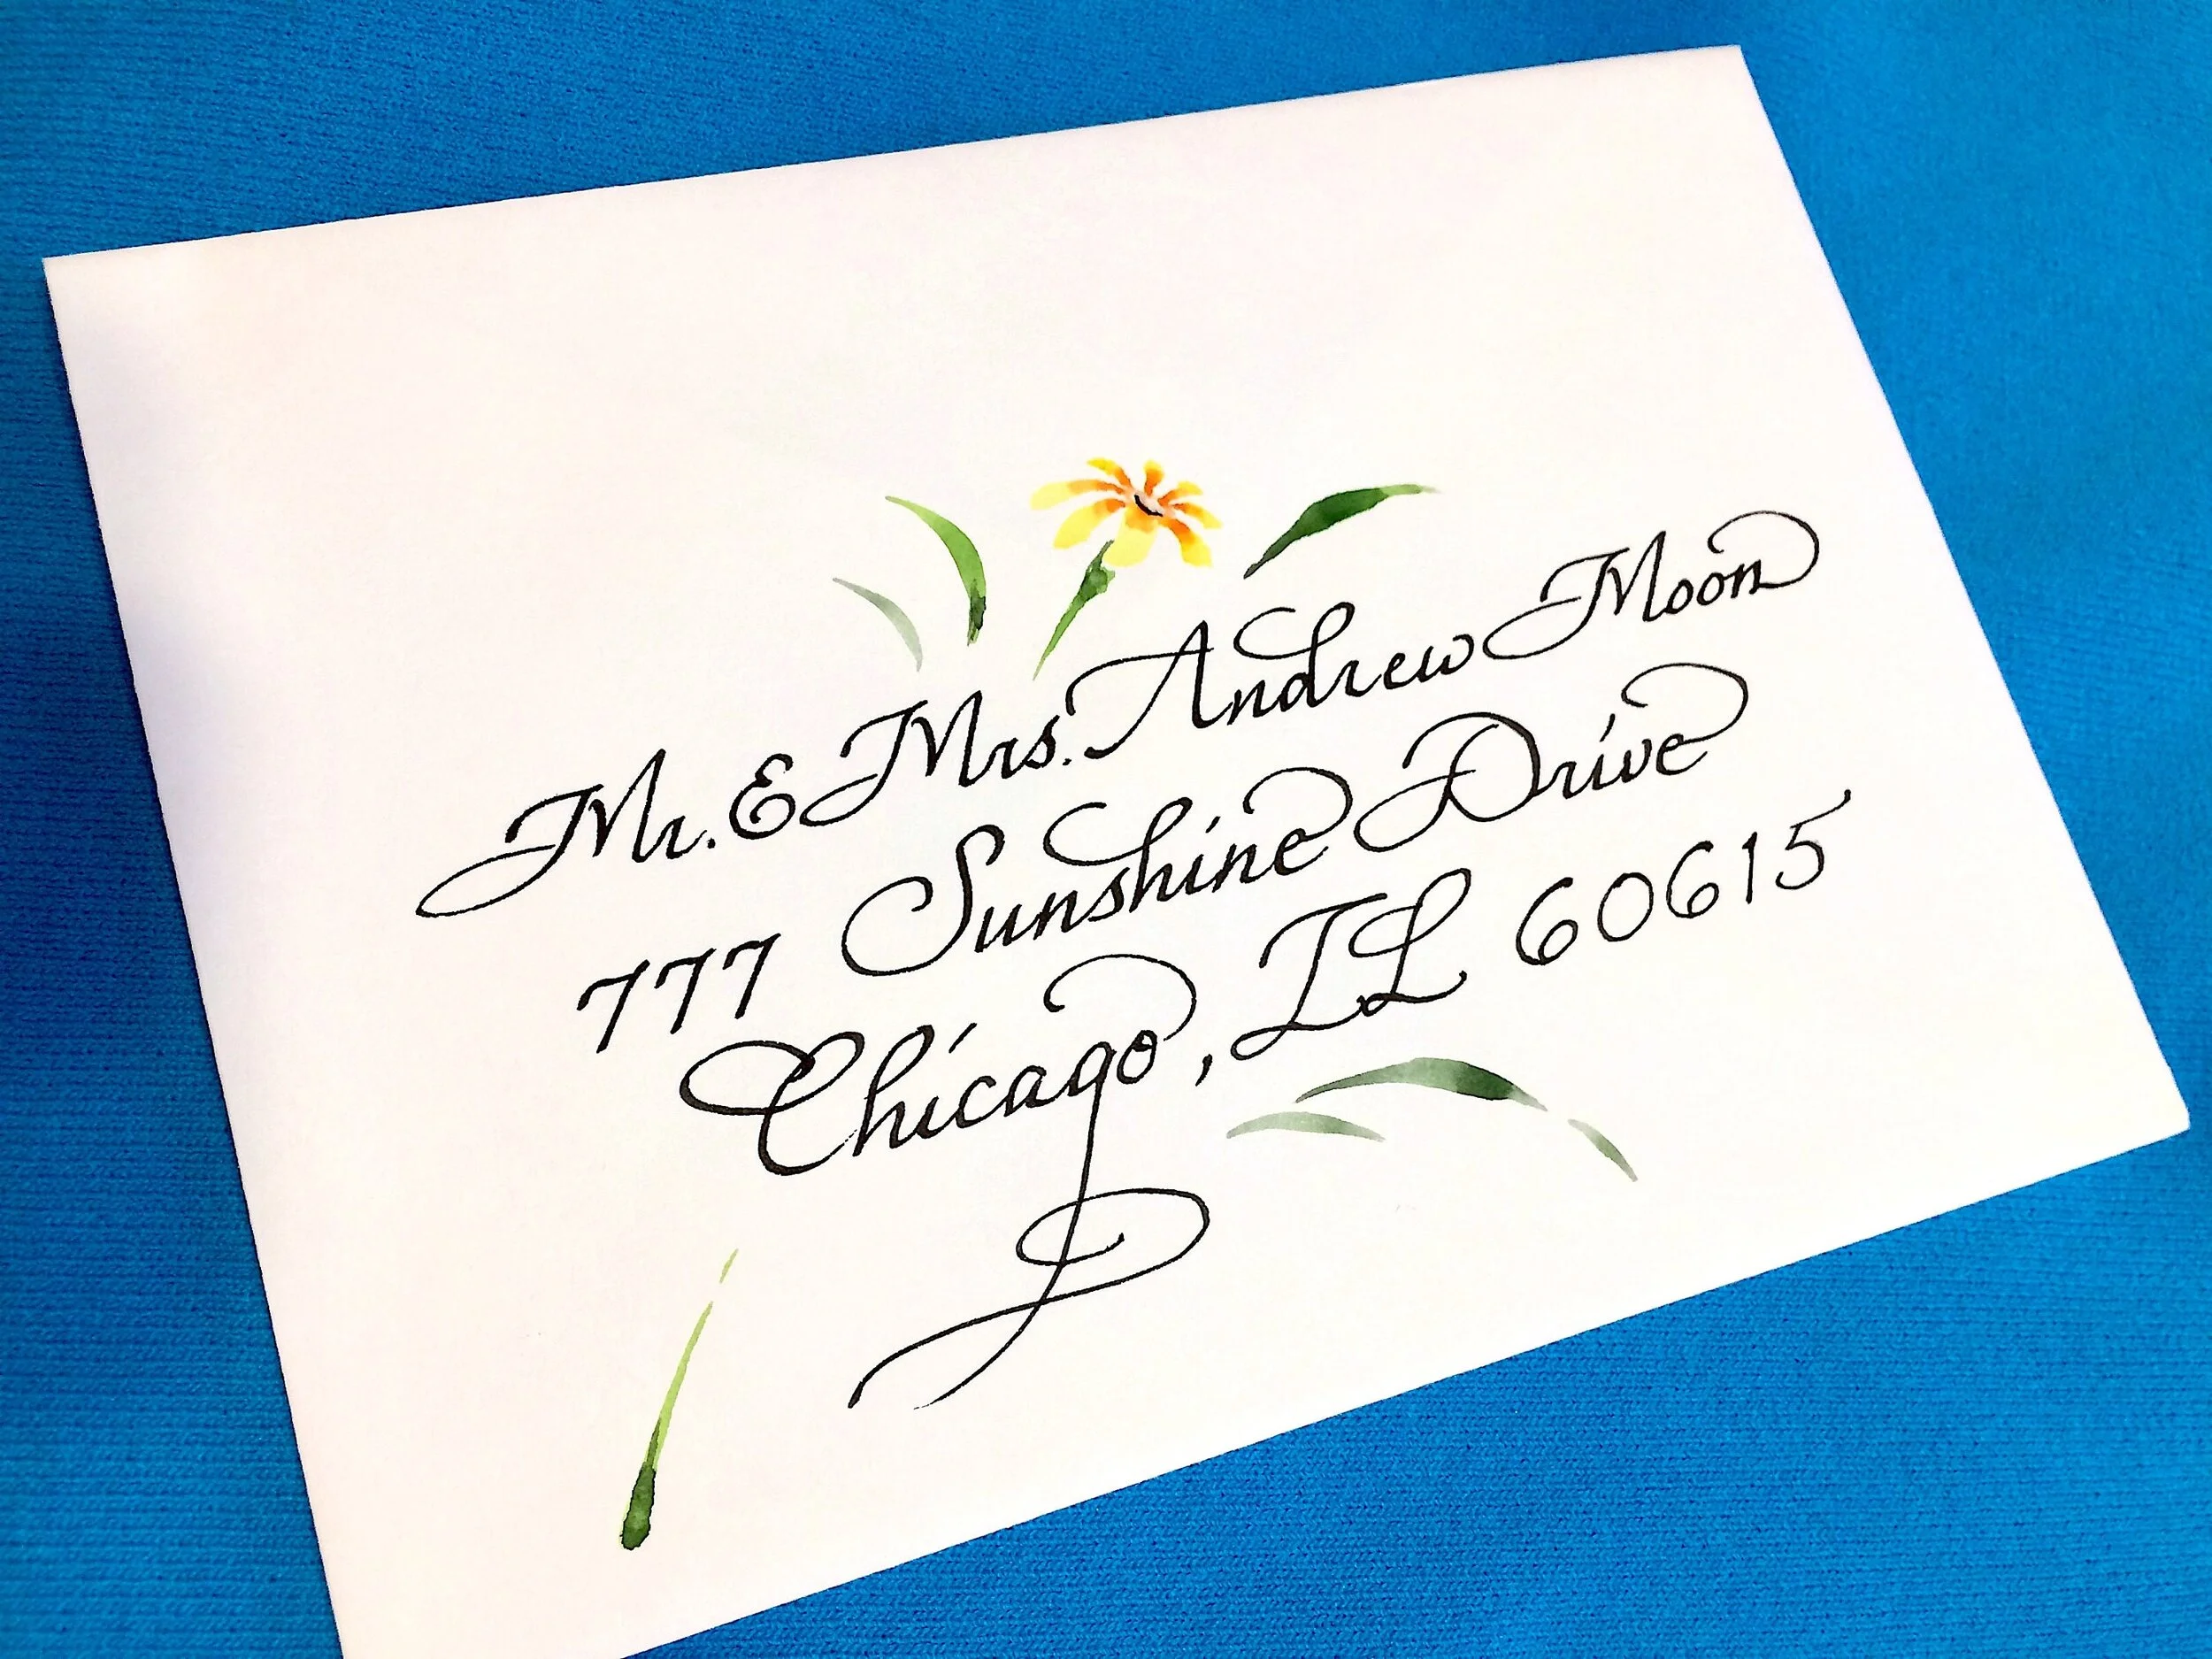 Mr. & Mrs. Andrew Moon
777 Sunshine Drive
Chicago, IL 60615